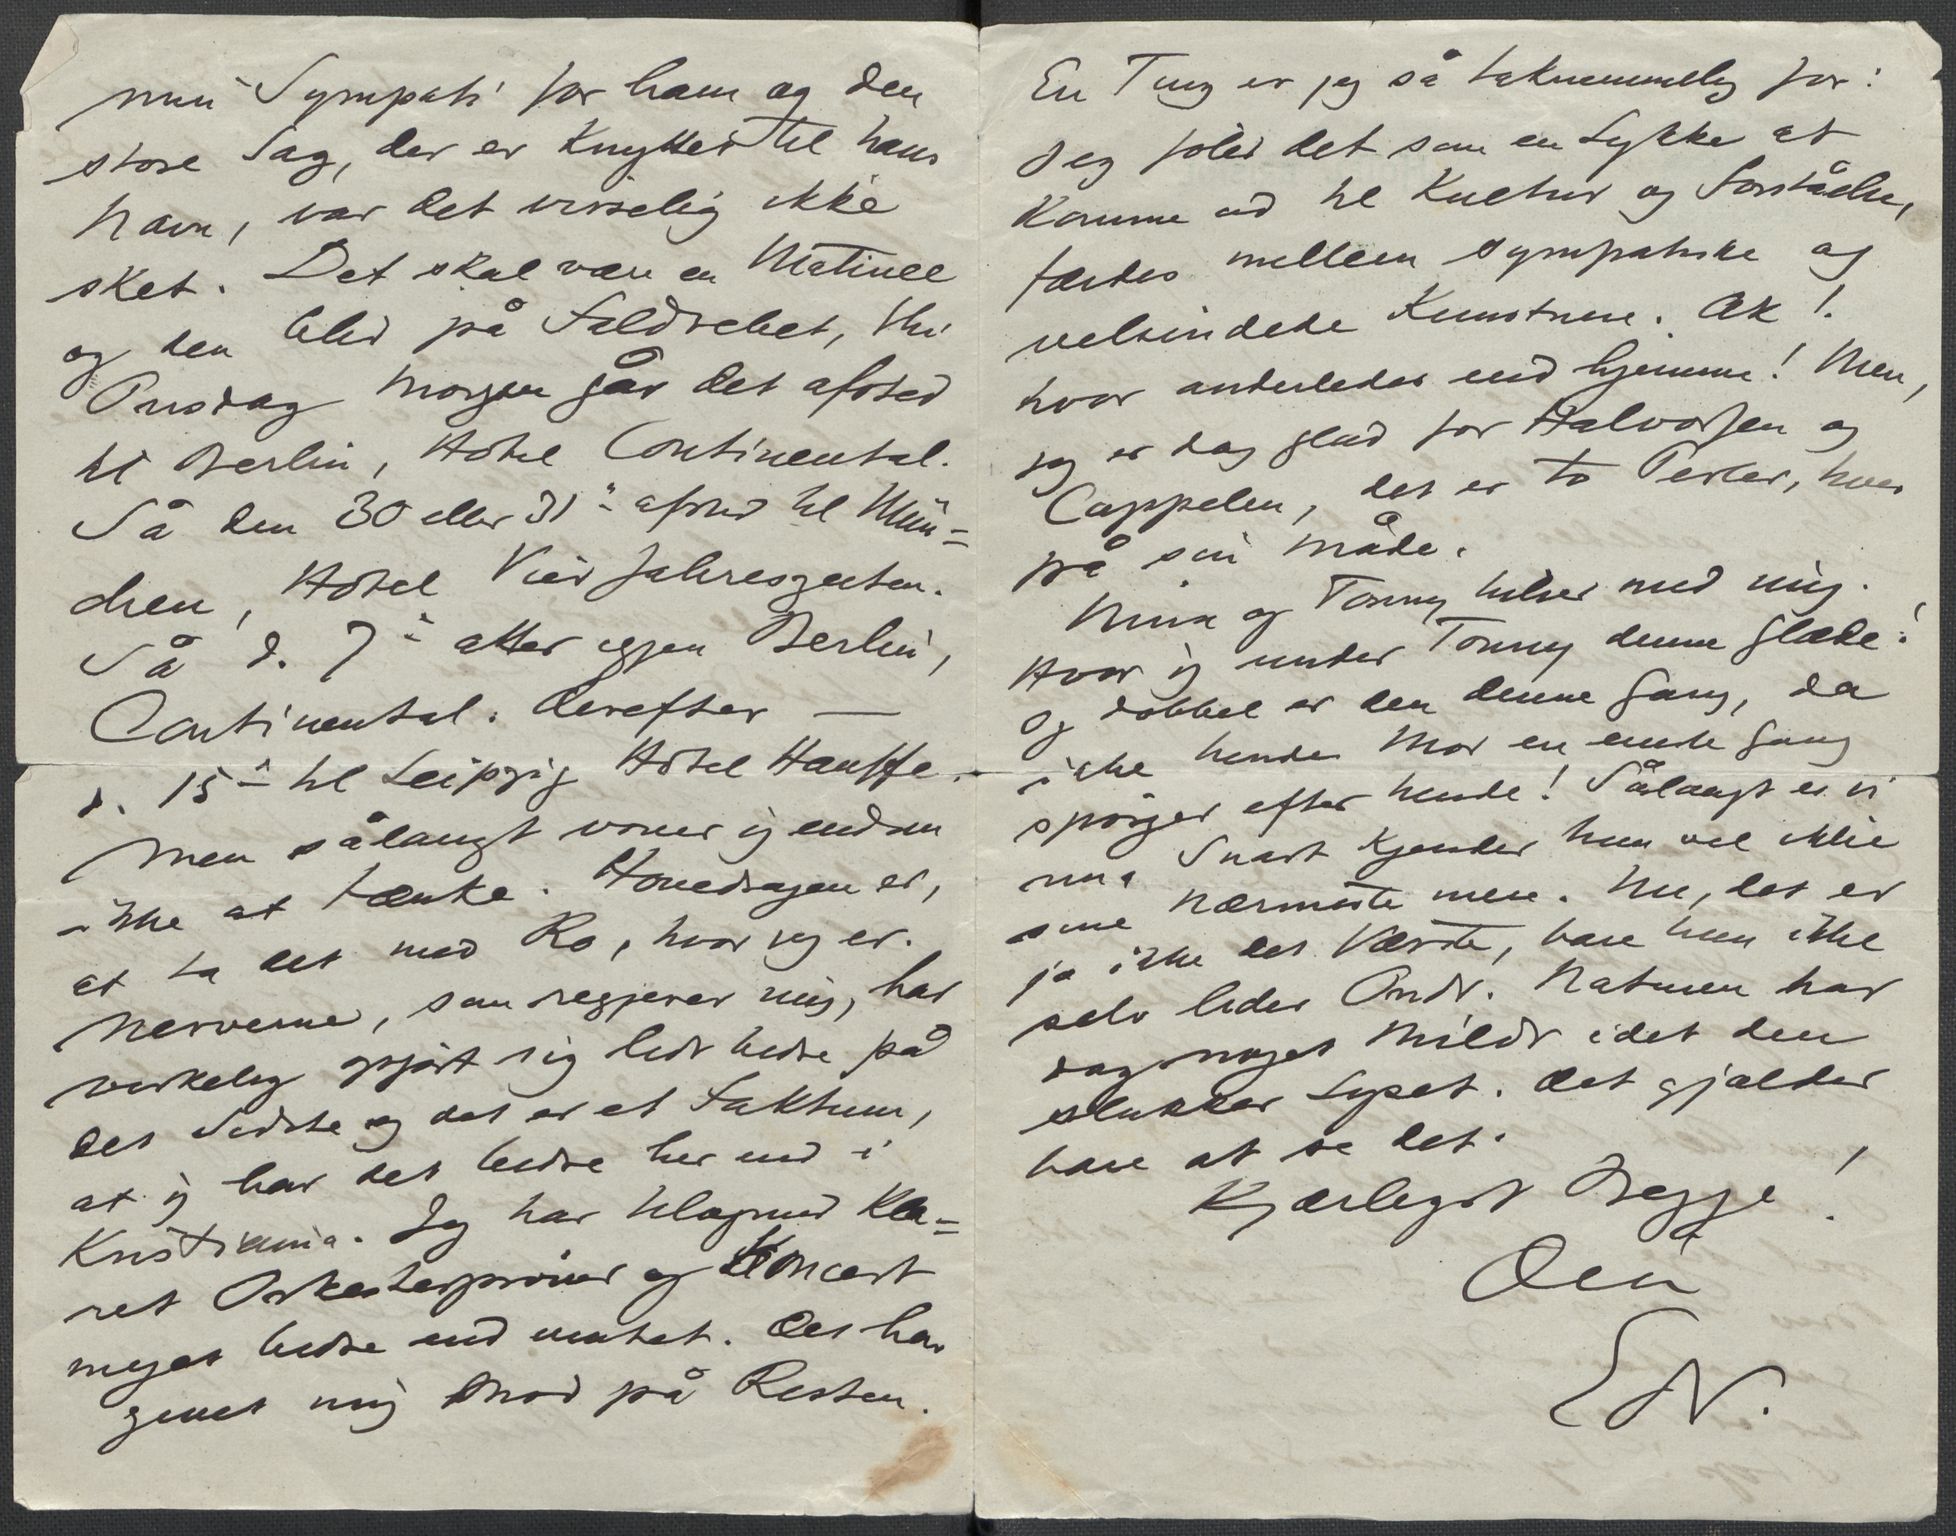 min Sympati for ham og den
store Sag, der er knyttet til hans
Navn, var det visselig ikke
sket. Det skal være en Matinee
og den blir på Faldrebet, thi
Onsdag Morgen går det afsted
til Berlin, Hôtel Continental.
Så den 30 eller 31te afsted til Mün=
chen, Hôtel Vier Jahreszeiten.
Så d. 7de atter igjen Berlin,
Continental. Derefter —
d. 15de til Leipzig Hôtel Hauffe.
Men sålangt vover jeg endnu
ikke at tænke. Hovedsagen er,
at ta det med Ro, hvor jeg er.
Nerverne, som regjerer mig, har
virkelig gjort sig lidt bedre på
det Sidste og det er et Faktum,
at jeg har det bedre her end i
Kristiania. Jeg har tilogmed kla=
ret Orkesterprøver og Koncert
meget bedre end ventet. Det har
givet mig Mod på Resten.
En Ting er jeg så taknemmelig for:
Jeg føler det som en Lykke at
komme ud til Kultur og Forståelse,
færdes mellem sympatiske og
velsindede Kunstnere. Ak!
hvor anderledes end hjemme! Men,
jeg er dog glad for Halvorsen og
Cappelen, det er to Perler, hver
på sin Måde.
Nina og Tonny hilser med mig.
Hvor jeg under Tonny denne Glæde!
Og dobbel er den denne Gang, da
ikke hendes Mor en eneste Gang
spørger efter hende! Sålangt er vi
nu. Snart kjender hun vel ikke
sine Nærmeste mere. Nu, det er
jo ikke det Værste, bare hun ikke
selv lider Ondt. Naturen har
dog noget Mildt idet den
slukker Lyset. Det gjælder
bare at se det.
Kjærligst Begge!
Din
E.G.